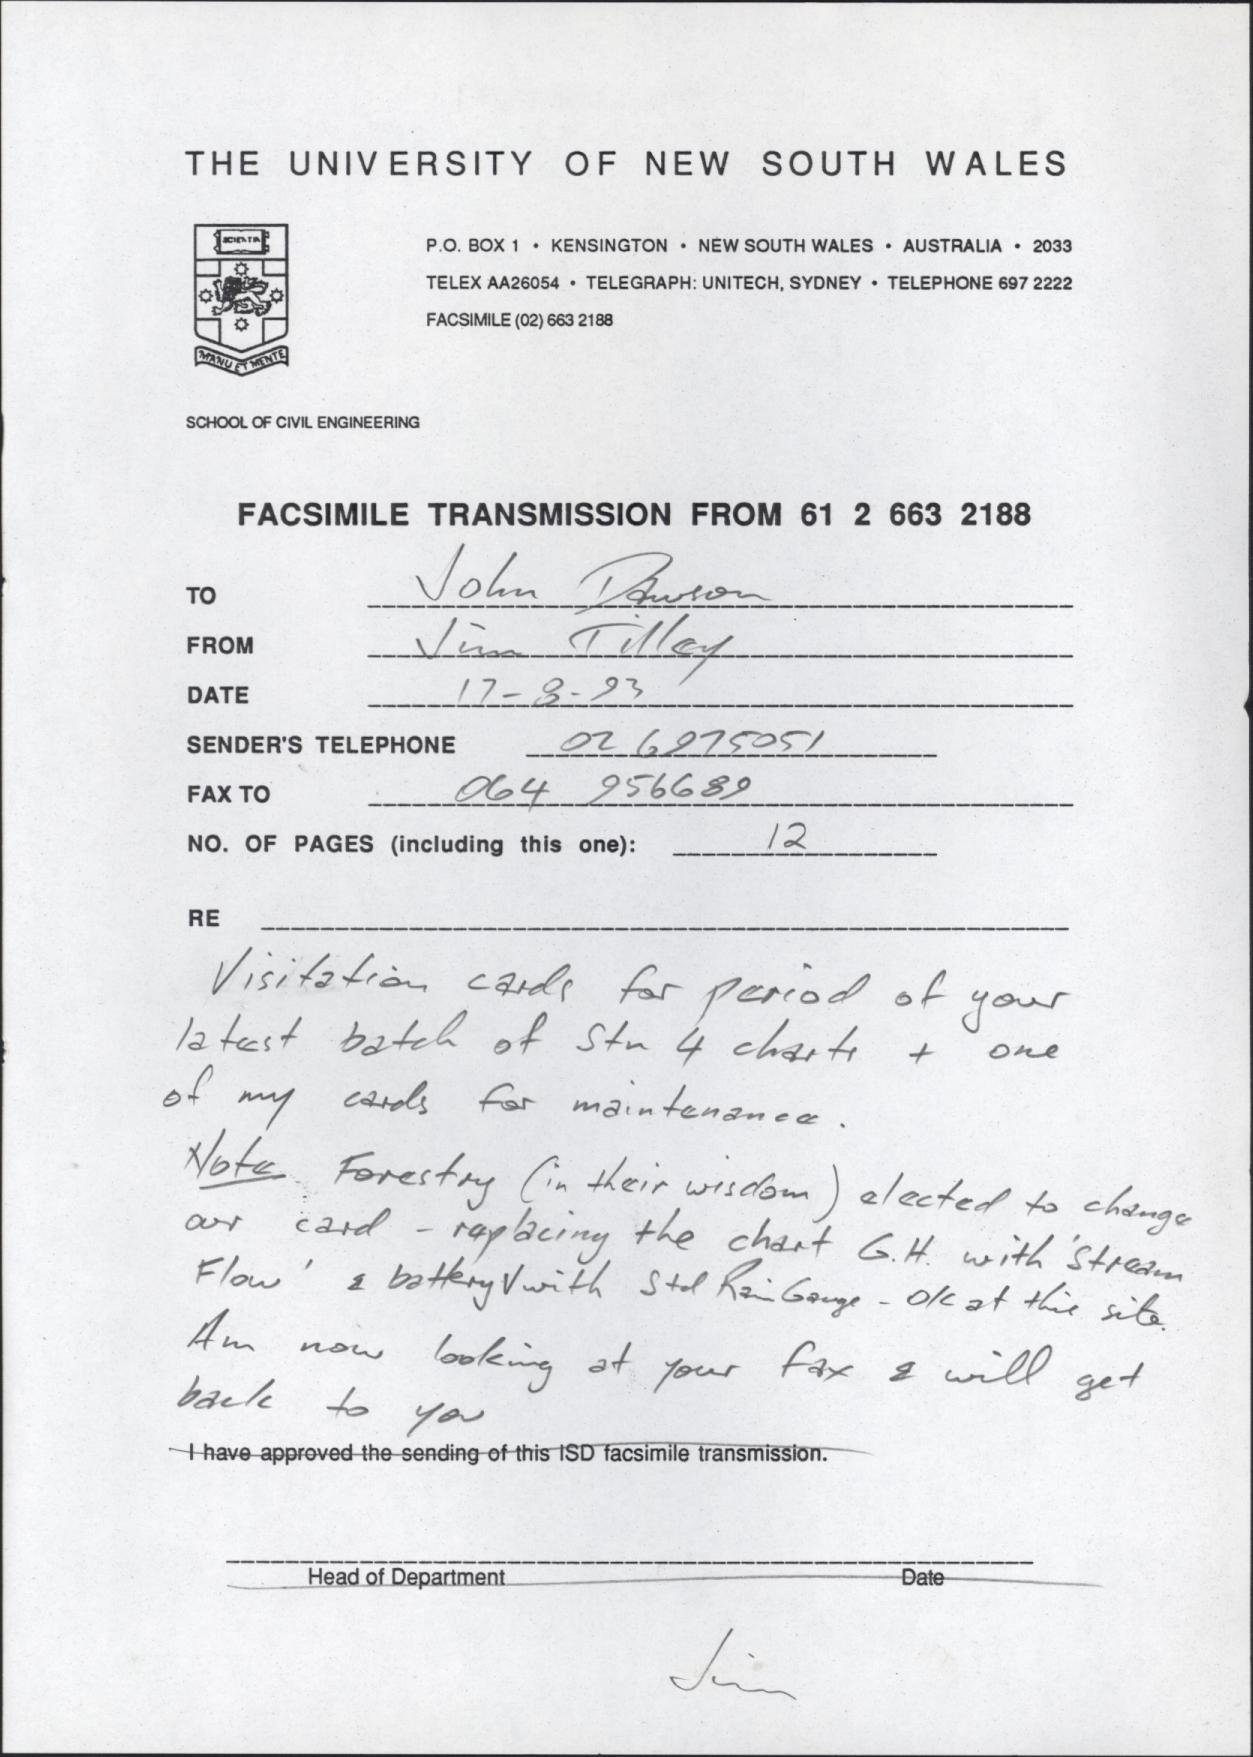 THE UNIVERSITY OF NEW SOUTH WALES
SCIENTIA
MANU ET MENTE
P.O. BOX 1 • KENSINGTON • NEW SOUTH WALES • AUSTRALIA • 2033
TELEX AA26054 • TELEGRAPH: UNITECH, SYDNEY • TELEPHONE 697 2222
FACSIMILE (02) 663 2188
SCHOOL OF CIVIL ENGINEERING
FACSIMILE TRANSMISSION FROM 61 2 663 2188
TO John Dawson
FROM Jim Tilley
DATE 17-8-93
SENDER'S TELEPHONE 02 6975051
FAX TO 064 956689
NO. OF PAGES (including this one): 12
RE
Visitation cards for period of your
latest batch of Stn 4 charts + one
of my cards for maintenance.
Note Forestry (in their wisdom) elected to change
our card - replacing the chart G.H. with 'Stream
Flow' & battery V with Std Rain Gauge - OK at this site.
Am now looking at your fax & will get
back to you
I have approved the sending of this ISD facsimile transmission.
Head of Department Date
Jim